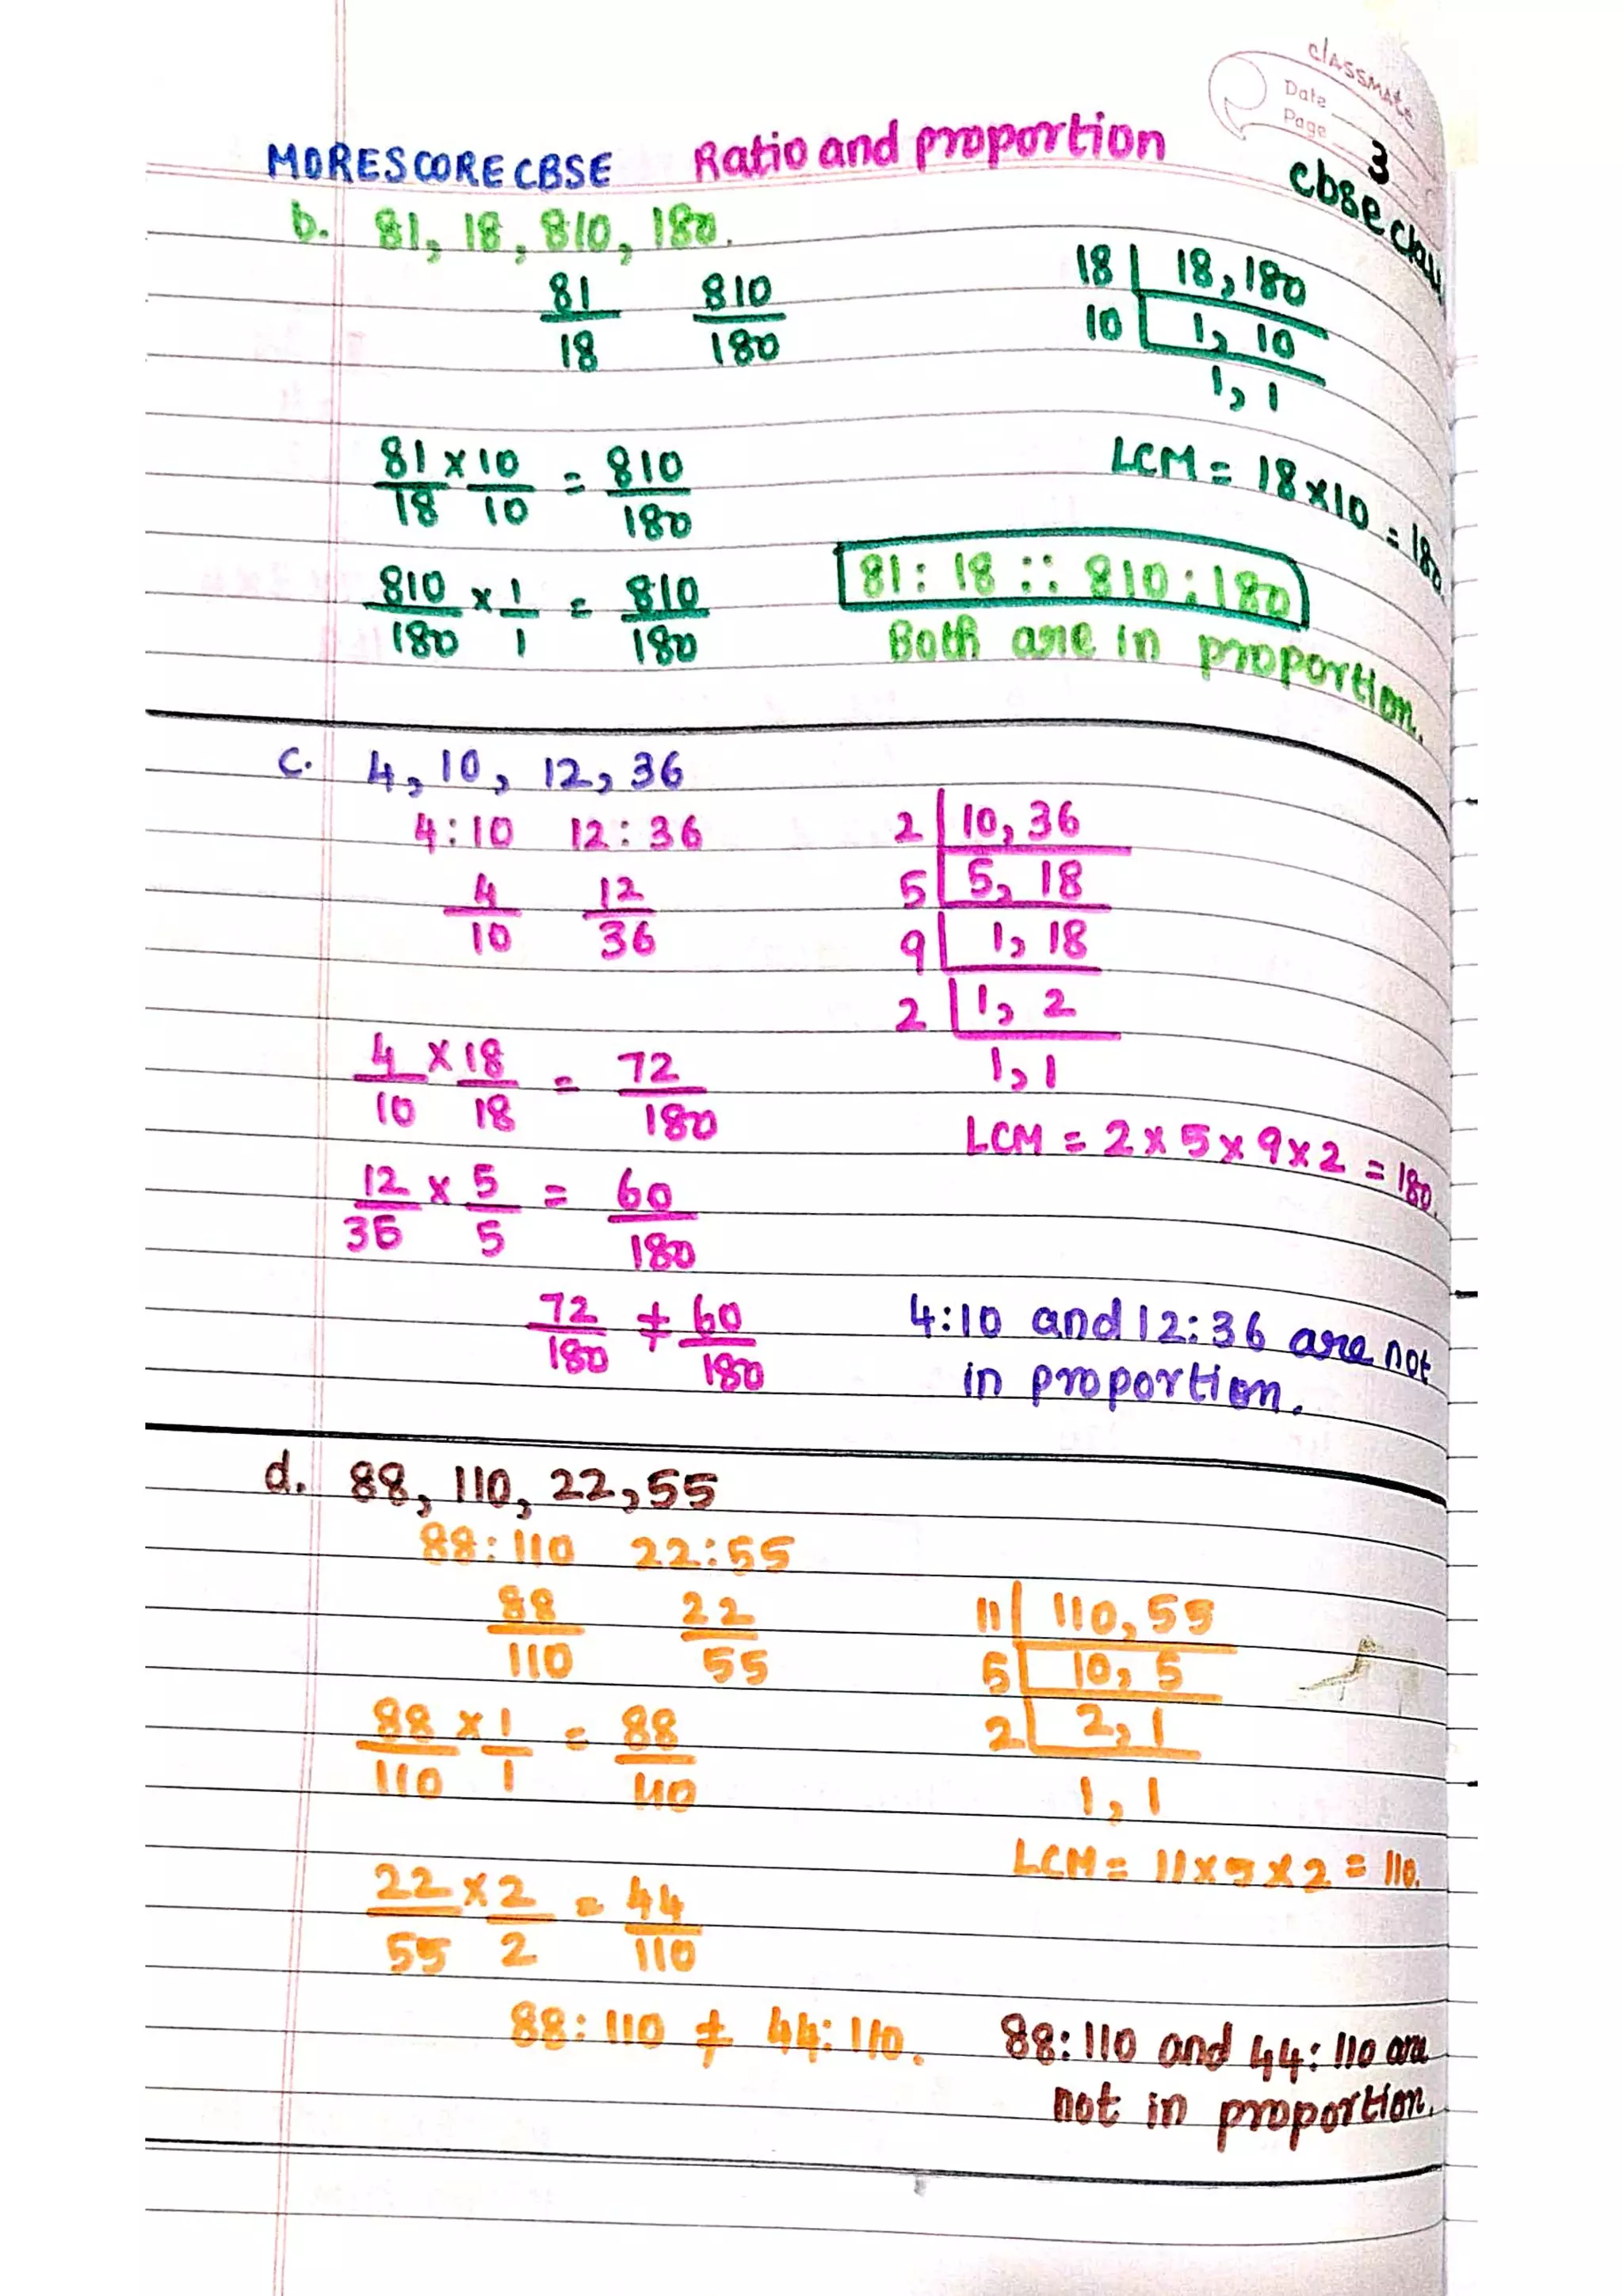 classmate
Date
Page
3
MORESCORECBSE Ratio and proportion
cbse class
b. 81, 18, 810, 180.
81/18 810/180
18 | 18, 180
10 | 1, 10
1, 1
81/18 × 10/10 = 810/180
LCM = 18×10 = 180
810/180 × 1/1 = 810/180
81 : 18 :: 810 : 180
Both are in proportion.
c. 4, 10, 12, 36
4:10 12:36
4/10 12/36
2 | 10, 36
5 | 5, 18
9 | 1, 18
2 | 1, 2
1, 1
4/10 × 18/18 = 72/180
LCM = 2×5×9×2 = 180.
12/36 × 5/5 = 60/180
72/180 ≠ 60/180
4:10 and 12:36 are not
in proportion.
d. 88, 110, 22, 55
88:110 22:55
88/110 22/55
11 | 110, 55
5 | 10, 5
2 | 2, 1
1, 1
88/110 × 1/1 = 88/110
LCM = 11×5×2 = 110.
22/55 × 2/2 = 44/110
88:110 ≠ 44:110.
88:110 and 44:110 are
not in proportion.